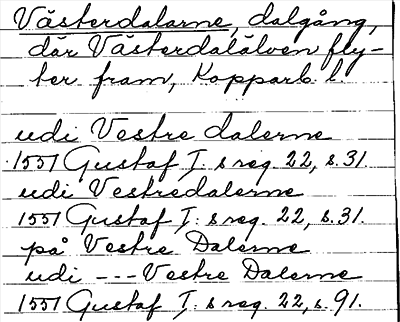 Västerdalarne, dalgång,
där Västerdalälven fly-
ter fram, Kopparb. l.
udi Vestre dalerne
1551 Gustaf I:s reg. 22, s. 31.
udi Vestredalerne
1551 Gustaf I:s reg. 22, s. 31.
på Vestre Dalerne
udi --- Vestre Dalerne
1551 Gustaf I:s reg. 22, s. 91.